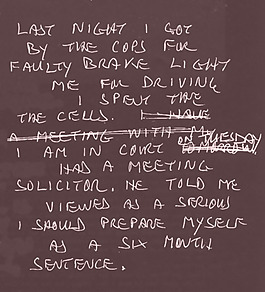 LAST NIGHT I GOT
BY THE COPS FOR
FAULTY BRAKE LIGHT
ME FOR DRIVING
I SPENT THE
THE CELLS. I HAVE
A MEETING WITH MY
I AM IN COURT ON TUESDAY TOMORROW.
HAD A MEETING
SOLICITOR. HE TOLD ME
VIEWED AS A SERIOUS
I SHOULD PREPARE MYSELF
AS A SIX MONTH
SENTENCE.